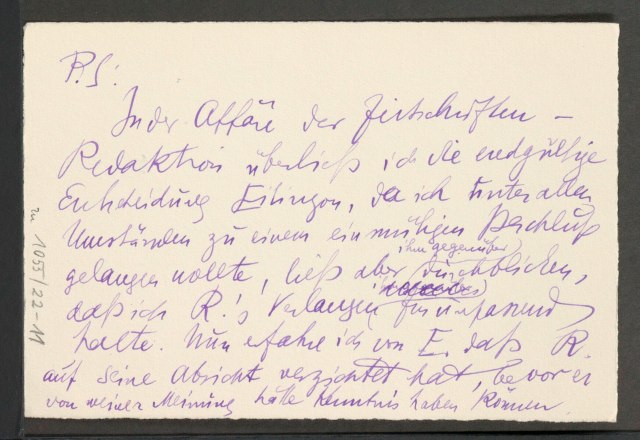 P.S:
In der Affäre der Zeitschriften-
Redaktion überließ ich die endgültige
Entscheidung Eitingon, da ich unter allen
Umständen zu einem einmütigen Beschluß
ihm gegenüber
gelangen wollte, ließ aber durchblicken,
daß ich R.'s Verlangen für unpassend
halte. Nun erfahre ich von E. daß R.
auf seine Absicht verzichtet hat, bevor er
von meiner Meinung hätte Kenntnis haben können.
zu 1055/22-11